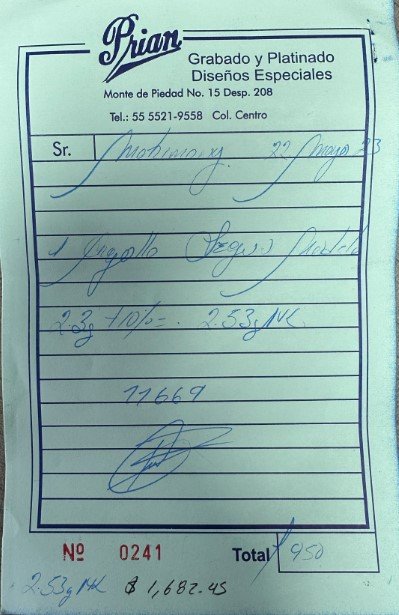 Prian
Grabado y Platinado
Diseños Especiales
Monte de Piedad No. 15 Desp. 208
Tel.: 55 5521-9558 Col. Centro
Sr. 22 Mayo 23
1
2.3g +10%= 2.53g
11669
Nº 0241 Total 950
2.53g $ 1,682.45